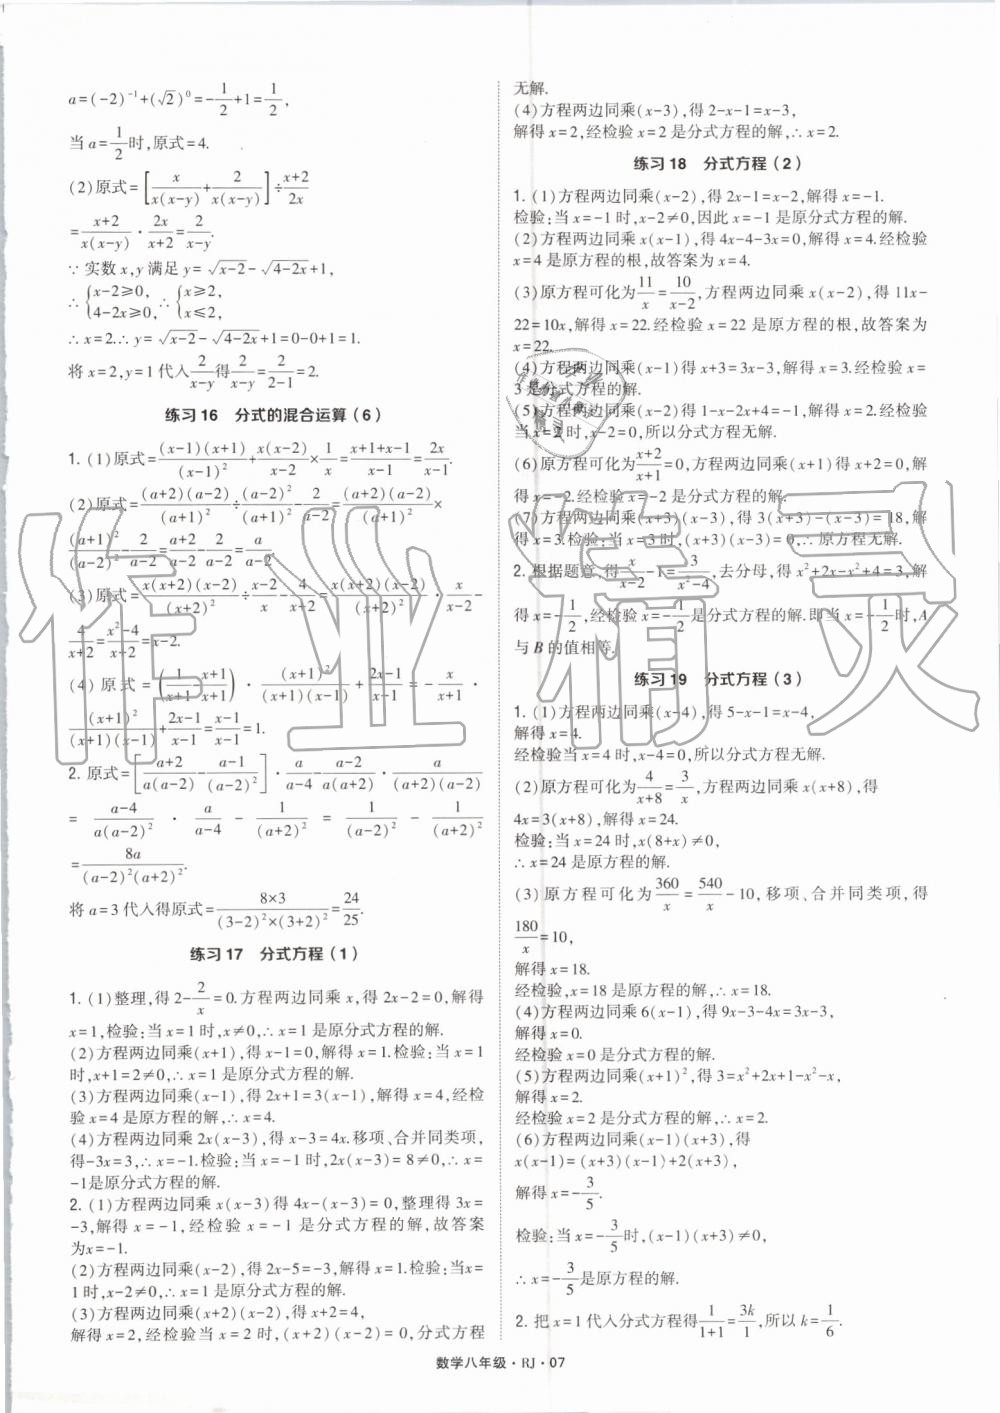 a=(-2)⁻¹+(√2)⁰=-1/2+1=1/2,
当 a=1/2时,原式=4.
(2)原式=[x/x(x-y)+2/x(x-y)]÷(x+2)/2x
=(x+2)/x(x-y)·2x/(x+2)=2/(x-y).
∵实数 x,y 满足 y=√(x-2)-√(4-2x)+1,
∴{x-2≥0, 4-2x≥0, ∴{x≥2, x≤2,
∴x=2.∴y=√(x-2)-√(4-2x)+1=0-0+1=1.
将 x=2,y=1 代入2/(x-y)得2/(x-y)=2/(2-1)=2.
练习 16 分式的混合运算(6)
1. (1)原式=(x-1)(x+1)/(x-1)²+x(x-2)/(x-2)×1/x=(x+1+x-1)/(x-1)=2x/(x-1).
(2)原式=(a+2)(a-2)/(a+1)²÷(a-2)²/(a+1)²-2/(a-2)=(a+2)(a-2)/(a+1)²×
(a+1)²/(a-2)²-2/(a-2)=(a+2)/(a-2)-2/(a-2)=a/(a-2).
(3)原式=x(x+2)(x-2)/(x+2)²÷(x-2)/x-4/(x+2)=x(x+2)(x-2)/(x+2)²·x/(x-2)-
4/(x+2)=(x²-4)/(x+2)=x-2.
(4)原式=(1/(x+1)-(x+1)/(x+1))·(x+1)²/(x+1)(x-1)+(2x-1)/(x-1)=-x/(x+1)·
(x+1)²/(x+1)(x-1)+(2x-1)/(x-1)=(x-1)/(x-1)=1.
2. 原式=[(a+2)/a(a-2)-(a-1)/(a-2)²]·a/(a-4)-(a-2)/a(a+2)·a/(a+2)(a-2)
=(a-4)/a(a-2)²·a/(a-4)-1/(a+2)²=1/(a-2)²-1/(a+2)²
=8a/(a-2)²(a+2)².
将 a=3 代入得原式=8×3/(3-2)²×(3+2)²=24/25.
练习 17 分式方程(1)
1. (1)整理,得 2-2/x=0.方程两边同乘 x,得 2x-2=0,解得
x=1,检验:当 x=1 时,x≠0,∴x=1 是原分式方程的解.
(2)方程两边同乘(x+1),得 x-1=0,解得 x=1.检验:当 x=1
时,x+1=2≠0,∴x=1 是原分式方程的解.
(3)方程两边同乘(x-1),得 2x+1=3(x-1),解得 x=4,经检
验 x=4 是原方程的解,∴x=4.
(4)方程两边同乘 2x(x-3),得 x-3=4x.移项、合并同类项,
得-3x=3,∴x=-1.检验:当 x=-1 时,2x(x-3)=8≠0,∴x=
-1是原分式方程的解.
2. (1)方程两边同乘 x(x-3)得 4x-(x-3)=0,整理得 3x=
-3,解得 x=-1,经检验 x=-1 是分式方程的解,故答案
为x=-1.
(2)方程两边同乘(x-2),得 2x-5=-3,解得 x=1.检验:当x=
1 时,x-2≠0,∴x=1 是原分式方程的解.
(3)方程两边同乘(x+2)(x-2),得 x+2=4,
解得 x=2,经检验当 x=2 时,(x+2)(x-2)=0,分式方程
无解.
(4)方程两边同乘(x-3),得 2-x-1=x-3,
解得 x=2,经检验 x=2 是分式方程的解,∴x=2.
练习 18 分式方程(2)
1. (1)方程两边同乘(x-2),得 2x-1=x-2,解得 x=-1.
检验:当 x=-1 时,x-2≠0,因此 x=-1 是原分式方程的解.
(2)方程两边同乘(x-1),得 4x-4-3x=0,解得 x=4.经检验
x=4 是原方程的根,故答案为 x=4.
(3)原方程可化为11/x=10/(x-2),方程两边同乘 x(x-2),得 11x-
22=10x,解得 x=22.经检验 x=22 是原方程的根,故答案为
x=22.
(4)方程两边同乘(x-1)得 x+3=3x-3,解得 x=3.经检验 x=
3 是分式方程的解.
(5)方程两边同乘(x-2)得 1-x-2x+4=-1,解得 x=2.经检验
当 x=2 时,x-2=0,所以分式方程无解.
(6)原方程可化为(x+2)/(x+1)=0,方程两边同乘(x+1)得 x+2=0,解
得 x=-2.经检验 x=-2 是分式方程的解.
(7)方程两边同乘(x+3)(x-3),得 3(x+3)-(x-3)=18,解
得 x=3.检验:当 x=3 时,(x+3)(x-3)=0,∴原方程无解.
2. 根据题意,得x/(x-2)-1=3/(x²-4),去分母,得 x²+2x-x²+4=3,解
得 x=-1/2,经检验 x=-1/2 是分式方程的解.即当 x=-1/2时,A
与 B 的值相等.
练习 19 分式方程(3)
1. (1)方程两边同乘(x-4),得 5-x-1=x-4,
解得 x=4.
经检验当 x=4 时,x-4=0,所以分式方程无解.
(2)原方程可化为4/(x+8)=3/x,方程两边同乘 x(x+8),得
4x=3(x+8),解得 x=24.
检验:当 x=24 时,x(8+x)≠0,
∴x=24 是原方程的解.
(3)原方程可化为360/x=540/x-10,移项、合并同类项,得
180/x=10,
解得 x=18.
经检验,x=18 是原方程的解,∴x=18.
(4)方程两边同乘 6(x-1),得 9x-3-4x=3x-3,
解得 x=0.
经检验 x=0 是分式方程的解.
(5)方程两边同乘(x+1)²,得 3=x²+2x+1-x²-x,
解得 x=2.
经检验 x=2 是分式方程的解,∴x=2.
(6)方程两边同乘(x-1)(x+3),得
x(x-1)=(x+3)(x-1)+2(x+3),
解得 x=-3/5.
检验:当 x=-3/5时,(x-1)(x+3)≠0,
∴x=-3/5是原方程的解.
2. 把 x=1 代入分式方程得1/(1+1)=3k/1,所以 k=1/6.
数学八年级·RJ·07
作业精灵